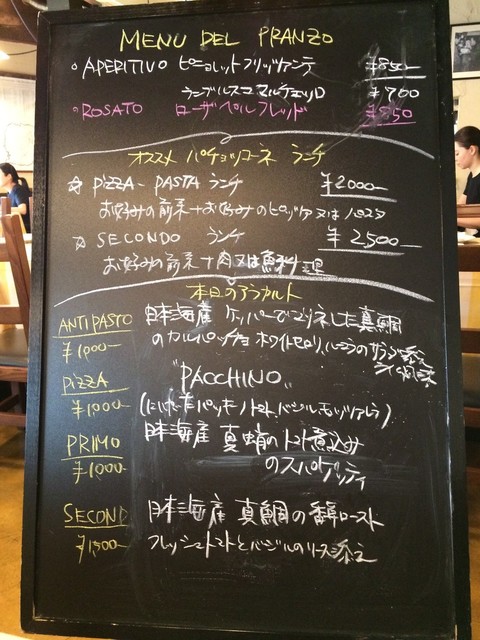 MENU DEL PRANZO
APERITIVO ピニョレット フリッツァンテ ¥850
ランブルスコ マルチェッロ ¥700
ROSATO ローザペルフレッド ¥850
オススメ パチョッコーネ ランチ
☆ PIZZA - PASTA ランチ ¥2000-
お好みの前菜+お好みのピッツァ又はパスタ
☆ SECONDO ランチ ¥2,500-
お好みの前菜+肉又は魚料理
本日のアラカルト
ANTIPASTO 日本海産 ケッパーでマリネした真鯛
¥1000- のカルパッチョ ホワイトセロリ,のサラダ添え
PIZZA "PACCHINO"
¥1000- パッキーノトマト バジル モッツァレラ)
PRIMO 日本海産 真蛸のトマト煮込み
¥1000- のスパゲッティ
SECOND 日本海産 真鯛の香草ロースト
¥1500- フレッシュトマトとバジルのソース添え